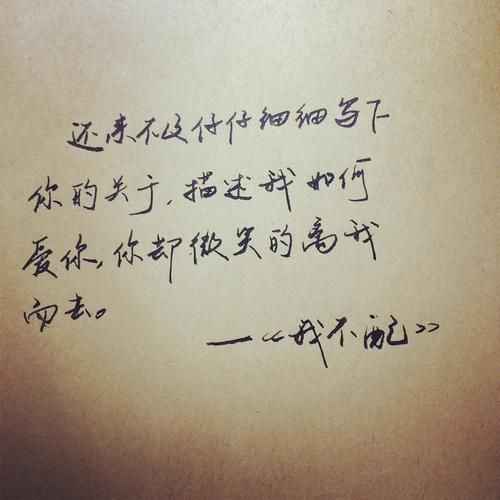 还来不及仔仔细细写下
你的关于,描述我如何
爱你,你却微笑的离我
而去。
—《我不配》